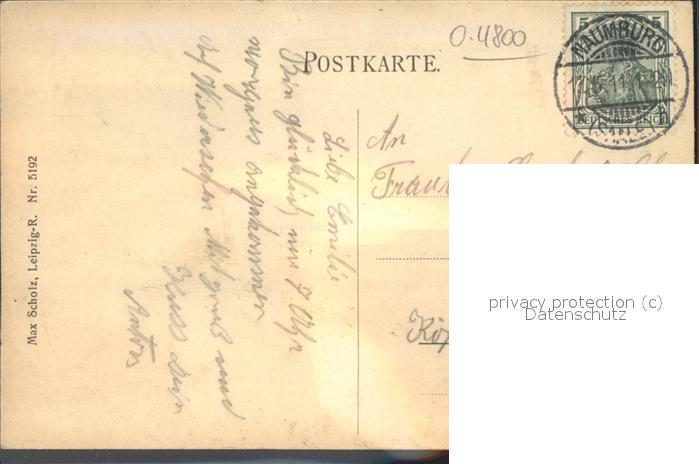 O.4800
POSTKARTE.
5 5
NAUMBURG
DEUTSCHES REICH
(SAALE)
An
Frau
Liebe Emilie
Bin glücklich um 7 Uhr
morgens angekommen
auf Wiedersehen Mit Gruß und
Kuss Dein
Anton
Max Scholz, Leipzig-R. Nr. 5192
privacy protection (c)
Datenschutz